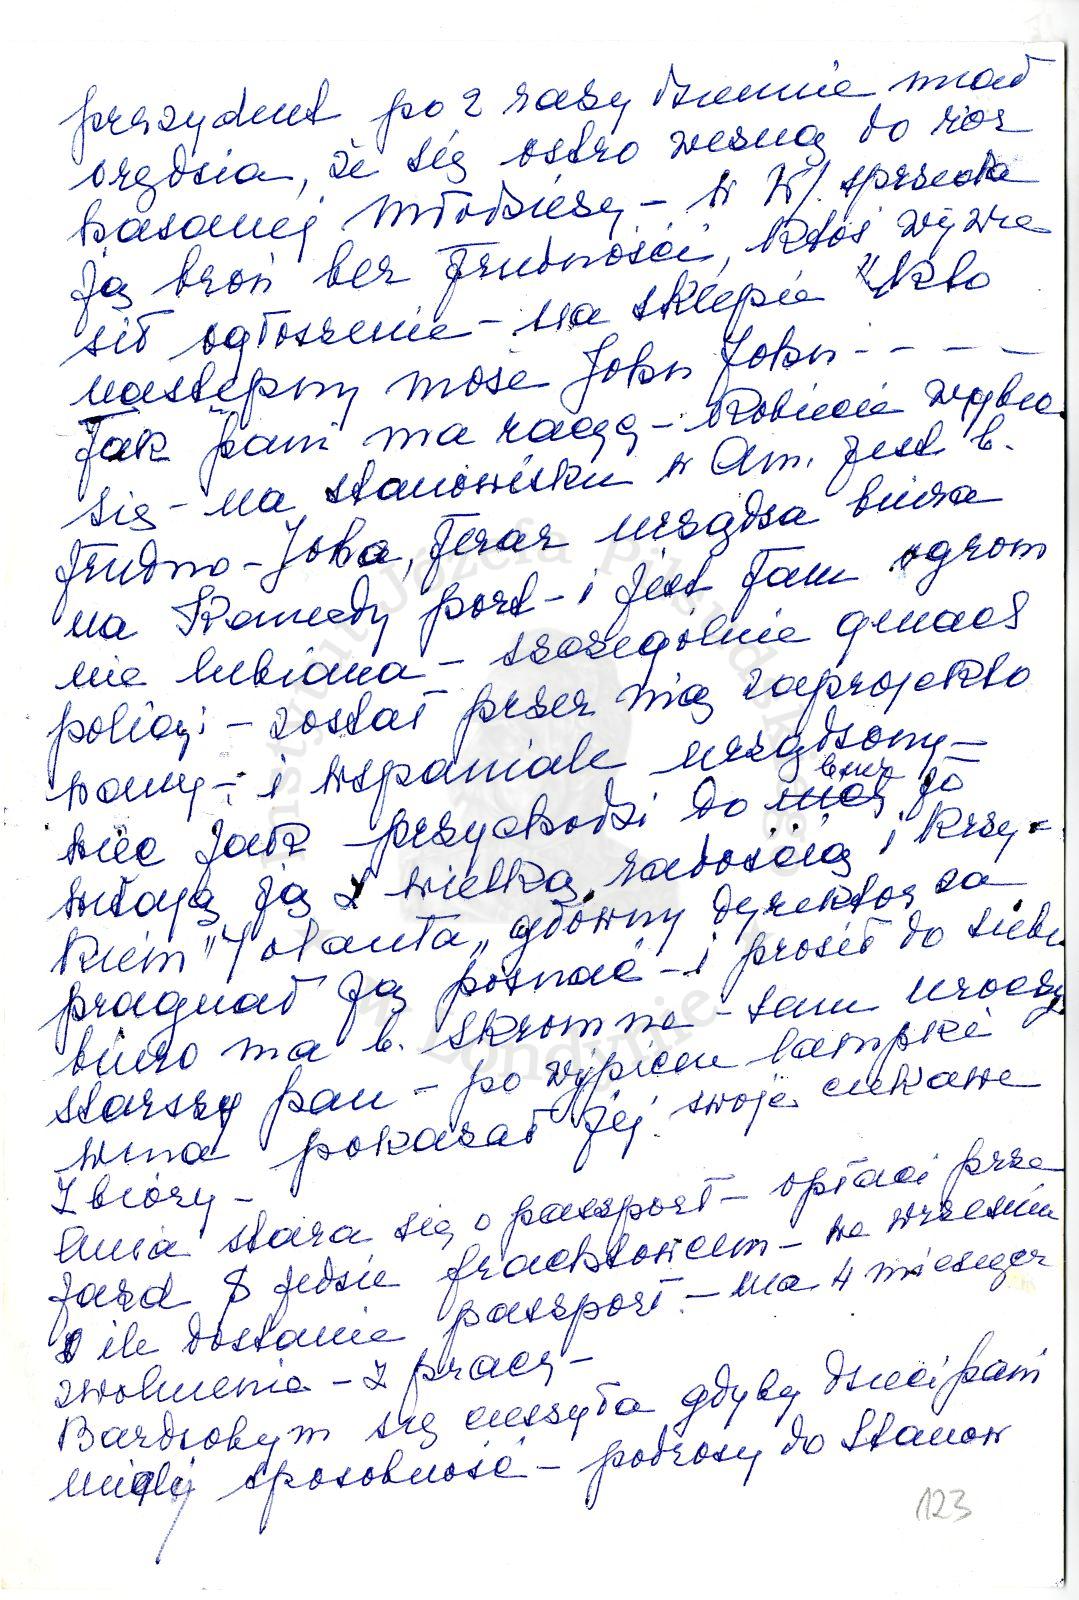 prezydent po 2 razy dziennie miał
orędzia, że się ostro wezną do roz
kasanej młodzieży – w W. sprzeda
ją broń bez trudności, ktoś wywie
sił ogłoszenie – na sklepie "kto
następny może John John - - - -
Tak pani ma rację – kobiecie wybić
się – na stanowisku w Am. jest b.
trudno – Jola, teraz urządza biura
na Kennedy port – i jest tam ogrom
nie lubiana – szczególnie gmach
policji – został przez nią zaprojekto
wany – i wspaniale urządzony –
więc jak przychodzi do biur to
witają ją z wielką radością i krzy-
kiem "Yolanta" główny dyrektor za
pragnął ją poznać – i prosił do siebie
biuro ma b. skromne – sam uroczy
starszy pan – po wypiciu lampki
wina pokazał jej swoje ciekawe
zbiory –
Ania stara się o paszport – opłaci prze
jazd & jedzie frachtowcem – we wrześniu
o ile dostanie paszport – ma 4 miesiące
zwolnienia – z pracy –
Bardzobym się cieszyła gdyby dzieci pani
miały sposobność – podroży do Stanow
123
Instytut Józefa Piłsudskiego
w Londynie